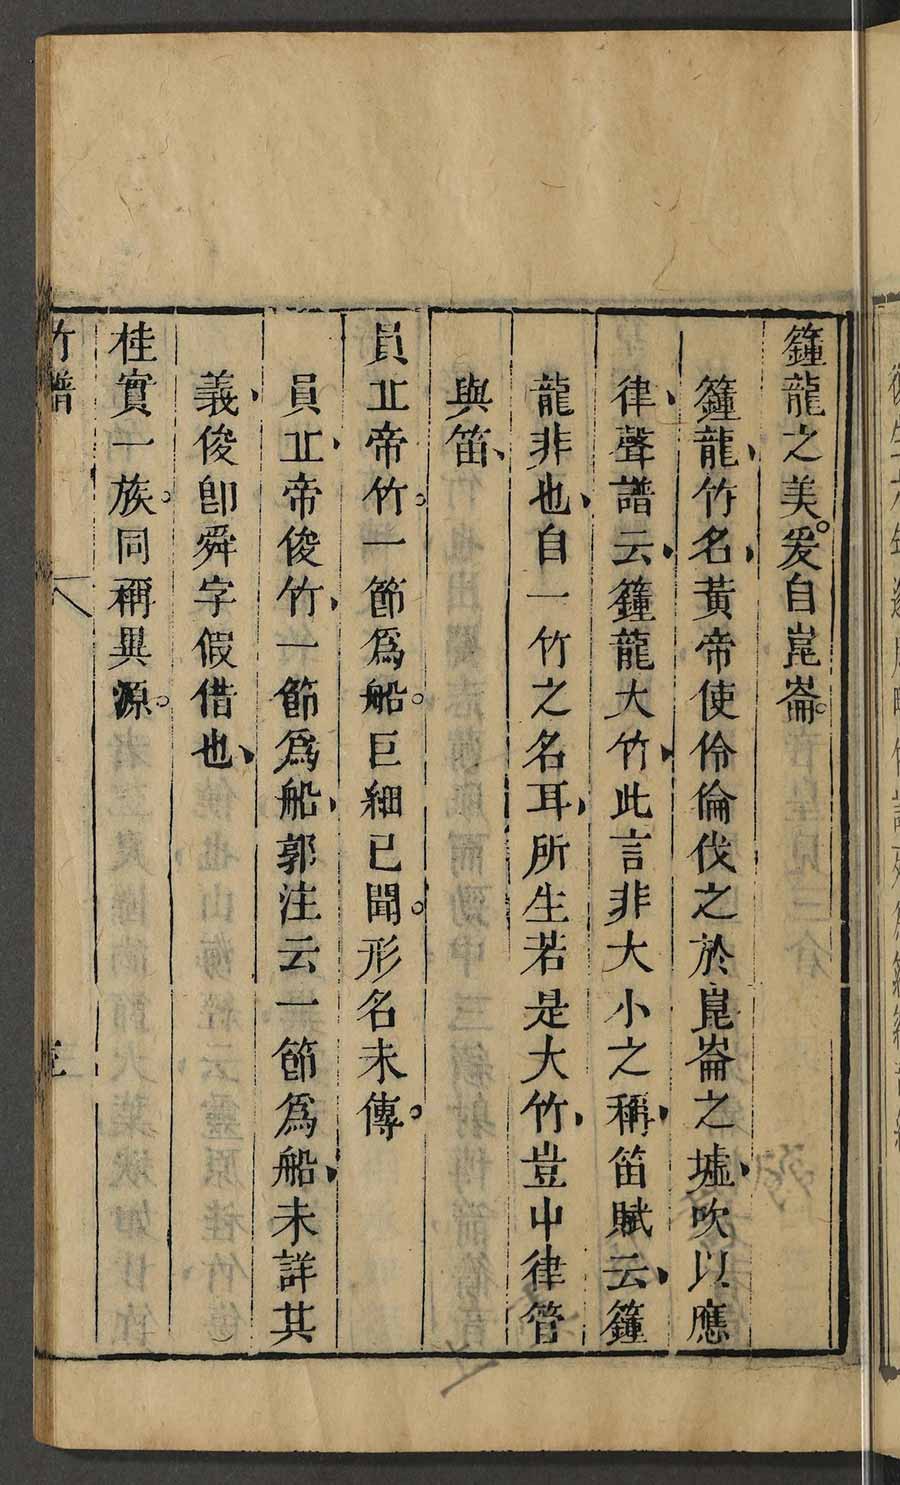 籦龍之美。爰自崑崙。
籦龍、竹名、黃帝使伶倫伐之於崑崙之墟、吹以應
律、聲譜云、籦龍大竹、此言非大小之稱、笛賦云、籦
龍非也、自一竹之名耳、所生若是大竹、豈中律管
與笛、
員丘帝竹。一節為船。巨細已聞。形名未傳。
員丘、帝俊竹、一節為船、郭注云一節為船、未詳其
義、俊卽舜字假借也、
桂實一族。同稱異源。
竹譜